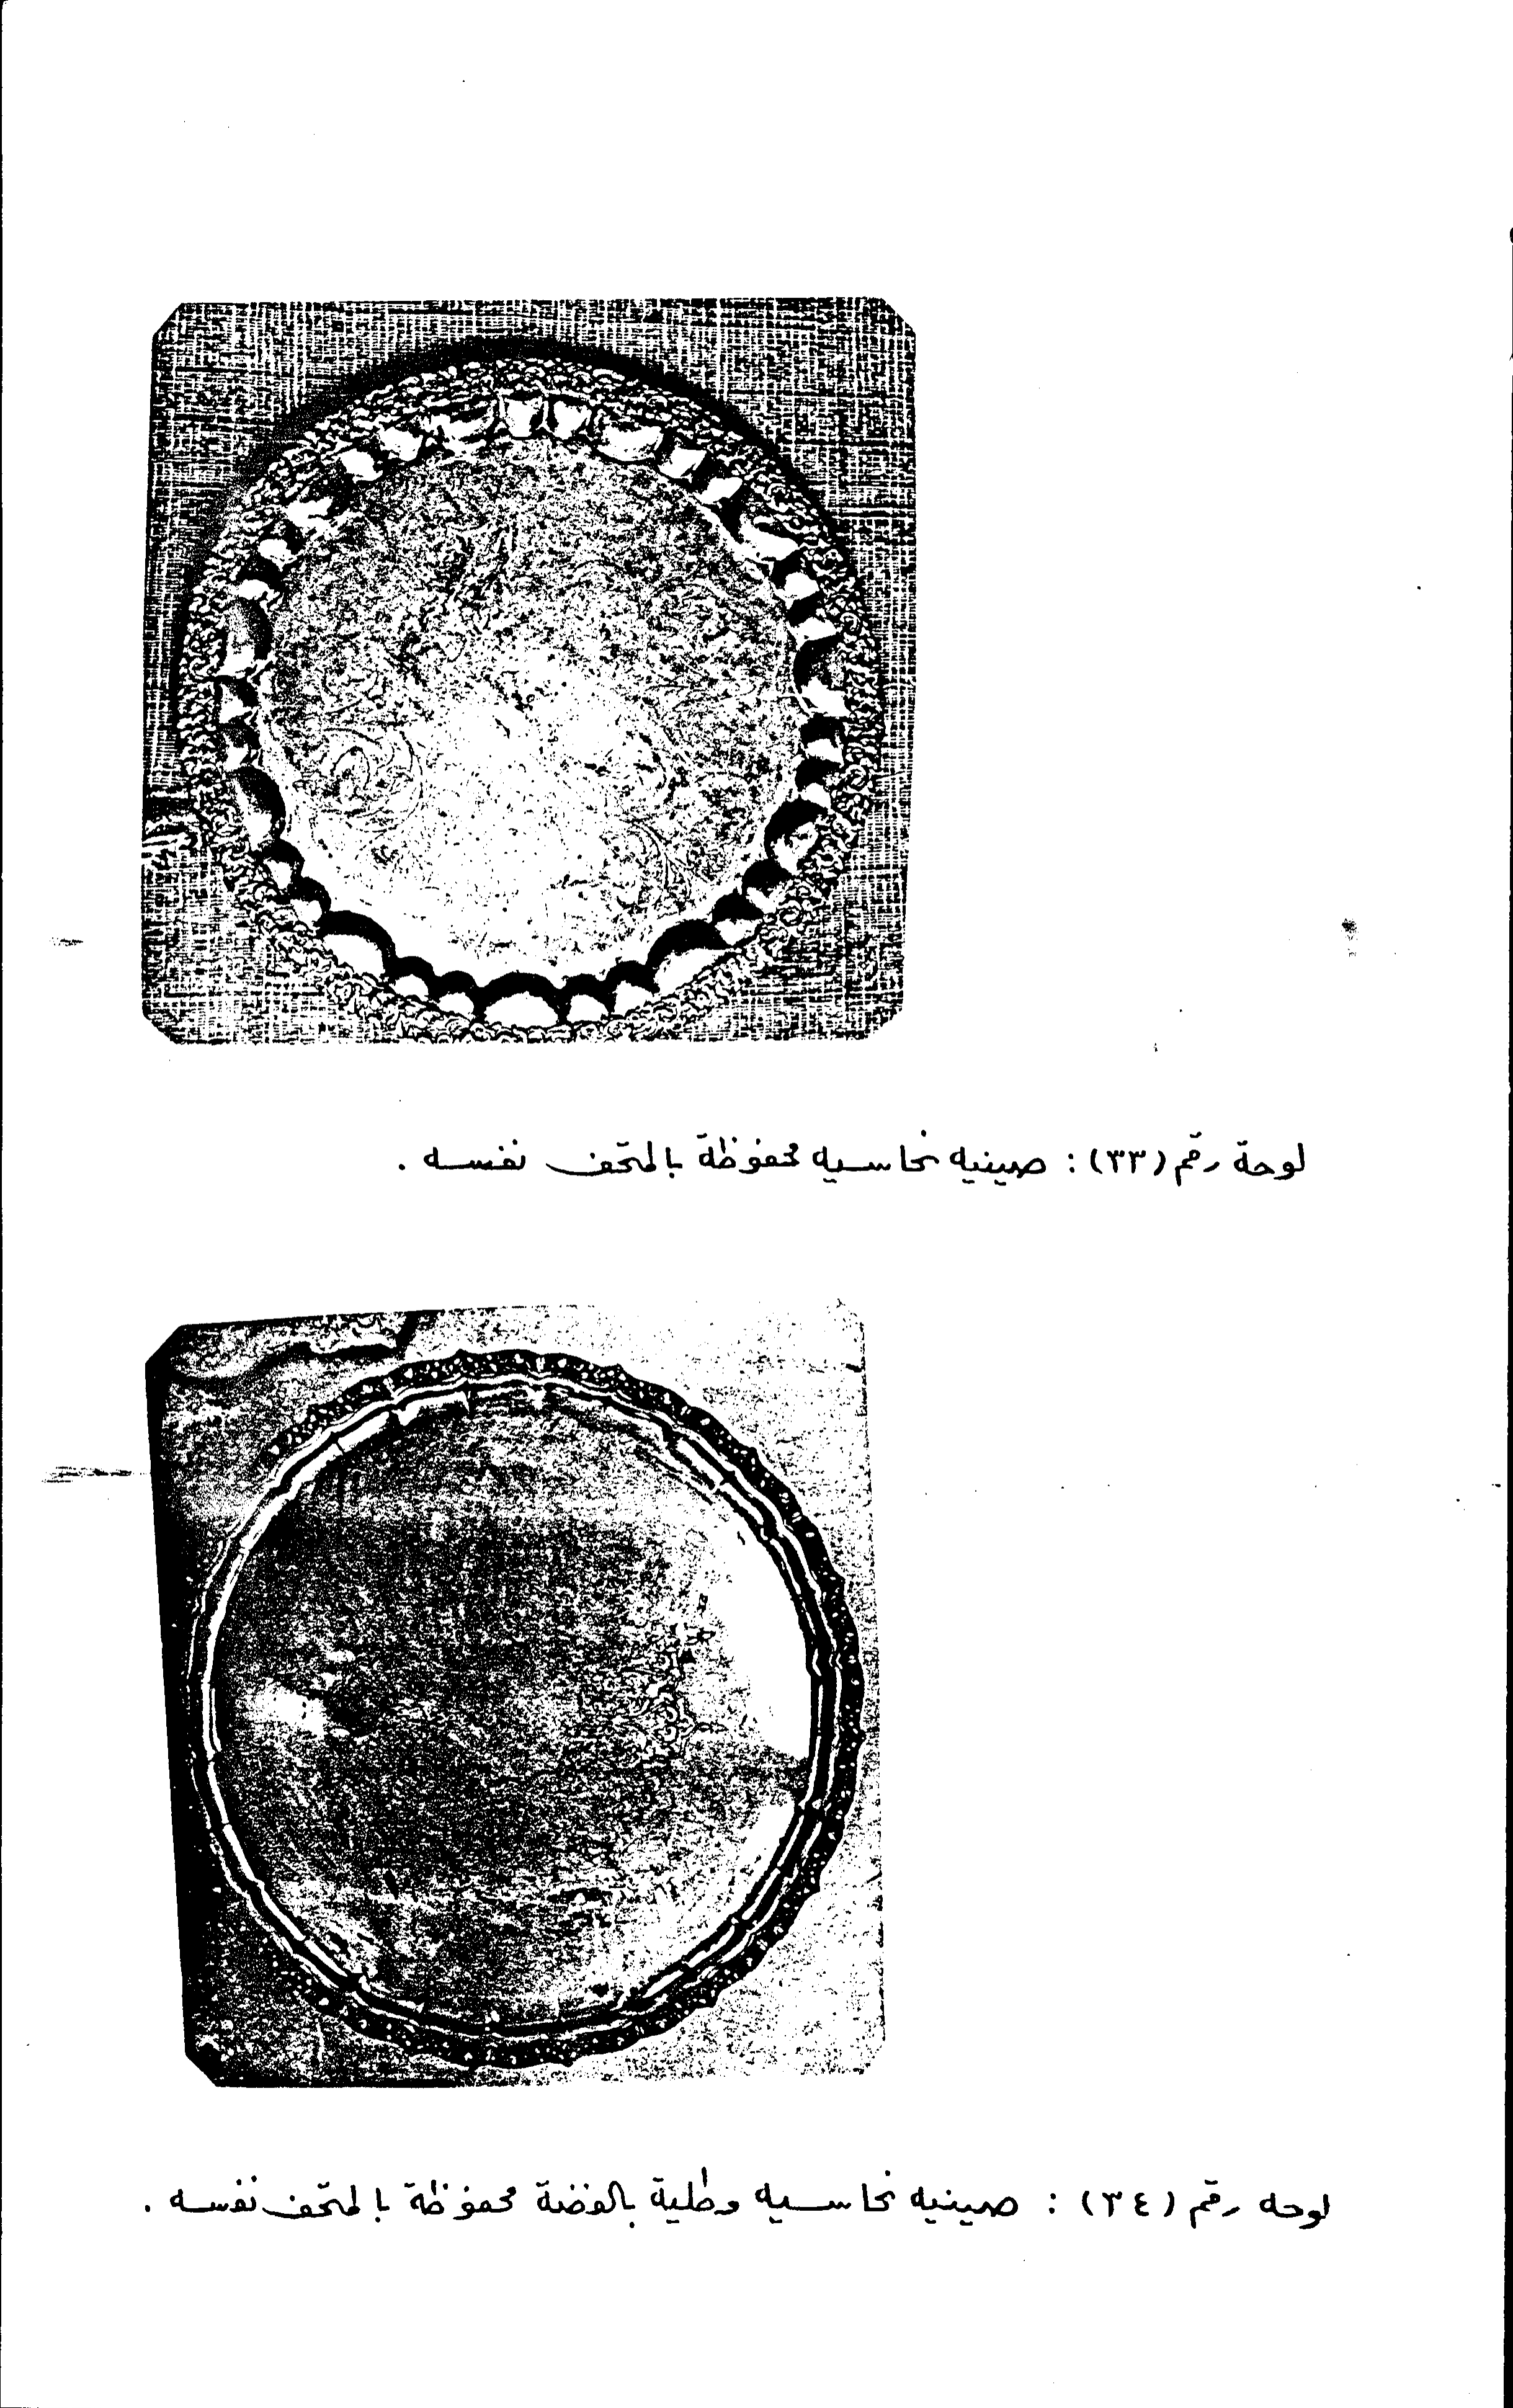 لوحة رقم (٣٣) : صينيه نحاسيه محفوظة بالمتحف نفسه .
لوحه رقم (٣٤) : صينيه نحاسيه مطلية بالفضة محفوظة بالمتحف نفسه .